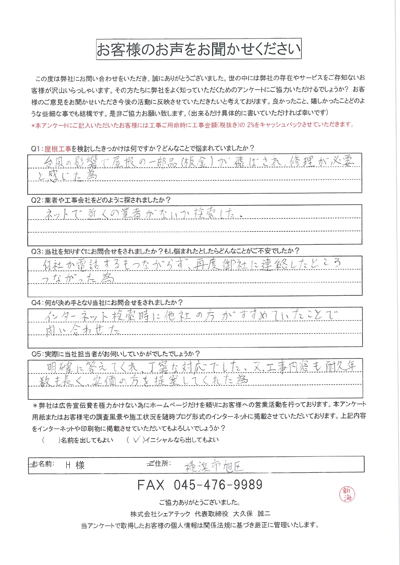 お客様のお声をお聞かせください
この度は弊社にお問い合わせをいただき、誠にありがとうございました。世の中には弊社の存在やサービスをご存知ないお
客様が沢山いらっしゃいます。その方たちに弊社をよく知っていただくためのアンケートにご協力いただけるでしょうか？ お客
様のご意見をお聞かせいただき今後の活動に反映させていただきたいと考えております。良かったこと、嬉しかったことどのよ
うな些細な事でも結構です。是非ご協力お願い致します。（出来るだけ具体的に書いていただければ幸いです）
*本アンケートにご記入いただいたお客様には工事ご用命時に工事金額(税抜き)の2%をキャッシュバックさせていただきます。
Q1：屋根工事を検討したきっかけは何ですか？どんなことで悩まれていましたか？
台風の影響で屋根の一部品(板金)が飛ばされ、修理が必要
と感じた為
Q2：業者や工事会社をどのように探されましたか？
ネットで近くの業者がないか検索した。
Q3：当社を知りすぐにお問合せをされましたか？もし悩まれたとしたらどんなことがご不安でしたか？
他社が電話するもつながらず、再度御社に連絡したところ
つながった為
Q4：何が決め手となり当社にお問合せをされましたか？
インターネット検索時に他社の方がすすめていたことで
問い合わせた
Q5：実際に当社担当者がお伺いしていかがでしたでしょうか？
明確に答えてくれ、丁寧な対応でした。又、工事内容も耐久年
数も長く、安価の方を提案してくれた為
＊弊社は広告宣伝費を極力かけない為にホームページだけを頼りにお客様への営業活動を行っております。本アンケート
用紙またはお客様宅の調査風景や施工状況を随時ブログ形式のインターネットに掲載させていただいております。上記内容
をインターネットや印刷物に掲載させていただいてもよろしいでしょうか？
（　）名前を出してもよい （✓）イニシャルなら出してもよい
お名前： H 様 ご住所： 横浜市旭区
FAX 045-476-9989
ご協力ありがとうございました。
株式会社シェアテック 代表取締役 大久保 誠二
当アンケートで取得したお客様の個人情報は関係法規に基づき厳正に管理いたします。